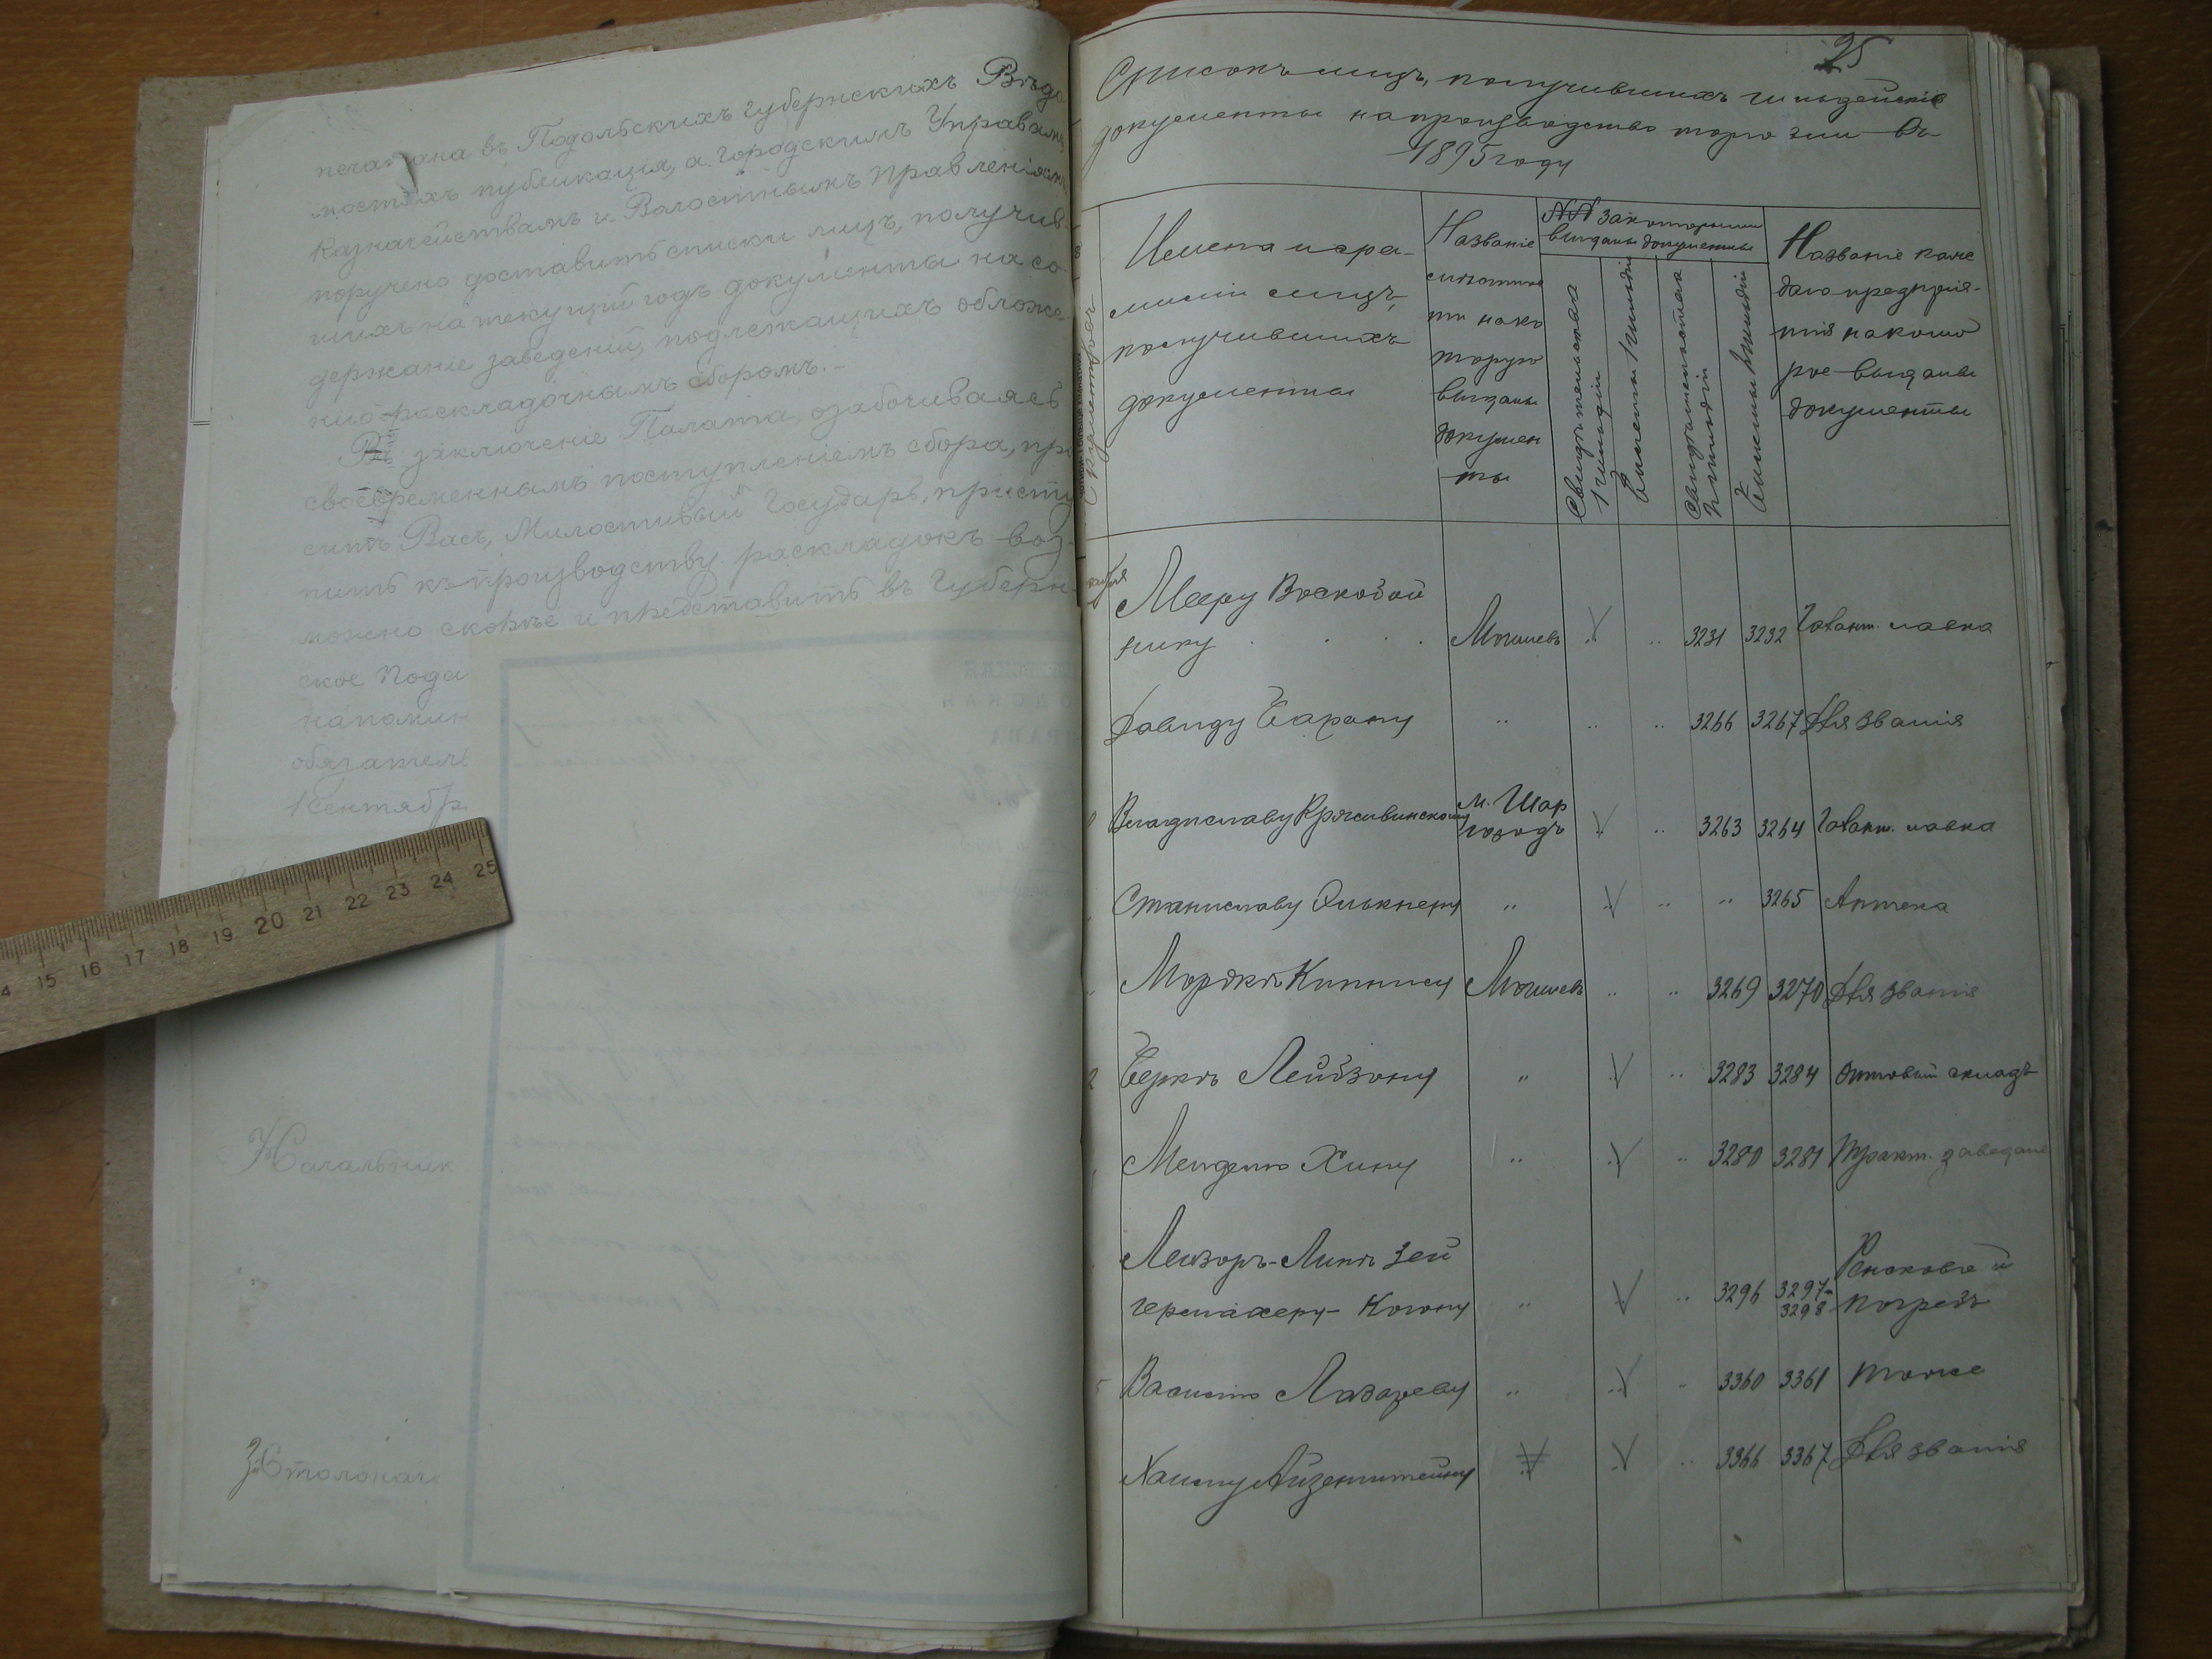 печатана въ Подольскихъ Губернскихъ Вѣдо
мостяхъ публикація, а Городскимъ Управамъ,
Казначействамъ и Волостнымъ Правленіямъ
поручено доставить списки лицъ, получив
шихъ на текущій годъ документы на со
держаніе заведеній, подлежащихъ обложе
нію раскладочнымъ сборомъ.-
Въ заключеніе Палата, озабочиваясь
своевременнымъ поступленіемъ сбора, про
ситъ Васъ, Милостивый Государь, присту
пить къ производству раскладокъ воз-
можно скорѣе и представить въ Губерн-
ское Пода
напомин
обязатель
1 Сентябр
Начальник
Столонача
14 15 16 17 18 19 20 21 22 23 24 25
25
Списокъ лицъ, получившихъ гильдейскіе
документы на производство торговли въ
1895 году
Имена и фа-
миліи лицъ,
получившихъ
документы
Названіе
мѣстнос
ти на ко
торую
выданы
докумен
ты
№№ за которыми
выданы документы
Свидѣтельства
1 гильдіи
Билеты 1 гильдіи
Свидѣтельства
II гильдіи
Билеты II гильдіи
Названіе каж
даго предпрія-
тія на кото
рое выданы
документы
Мееру Воскобой
нику . . . Могилевъ .. .. 3231 3232 Галант. лавка
Давиду Барану .. .. .. 3266 3267 Для званія
Владиславу м. Шар
городъ .. .. 3263 3264 Галант. лавка
Станиславу .. .. .. .. 3265 Аптека
Мордкѣ Кипнису Могилевъ .. .. 3269 3270 Для званія
Беркѣ Лейбзону .. .. .. 3283 3284 Оптовый складъ
Менделю Хину .. .. .. 3280 3281 Тракт. заведеніе
Лейзоръ-Липѣ Зей
гермахеру- Когону .. .. .. 3296 3297-
3298 Ренсковый
погребъ
Василію Лазареву .. .. .. 3360 3361 тоже
Хаиму Айзенштейну .. .. 3366 3367 Для званія